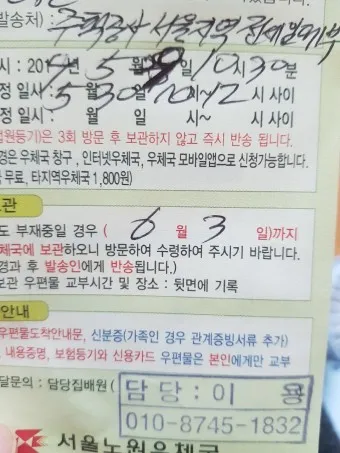 발송처: 주택공사 서울지역 전세임대부
시: 201 년 5 월 일 10시 30분
정 일시 5 월 30 일 10 시~ 12 시 사이
정 일시: 월 일 시~ 시 사이
법원등기)은 3회 방문 후 보관하지 않고 즉시 반송 됩니다.
경은 우체국 창구, 인터넷우체국, 우체국 모바일앱으로 신청가능합니다.
무료, 타지역우체국 1,800원)
보관
도 부재중일 경우 ( 6 월 3 일)까지
체국에 보관하오니 방문하여 수령하여 주시기 바랍니다.
경과 후 발송인에게 반송됩니다.)
보관 우편물 교부시간 및 장소 : 뒷면에 기록
안내
우편물도착안내문, 신분증(가족인 경우 관계증빙서류 추가)
, 내용증명, 보험등기와 신용카드 우편물은 본인에게만 교부
달문의 : 담당집배원 ( 담 당 : 이 용
010-8745-1832
서울노원우체국